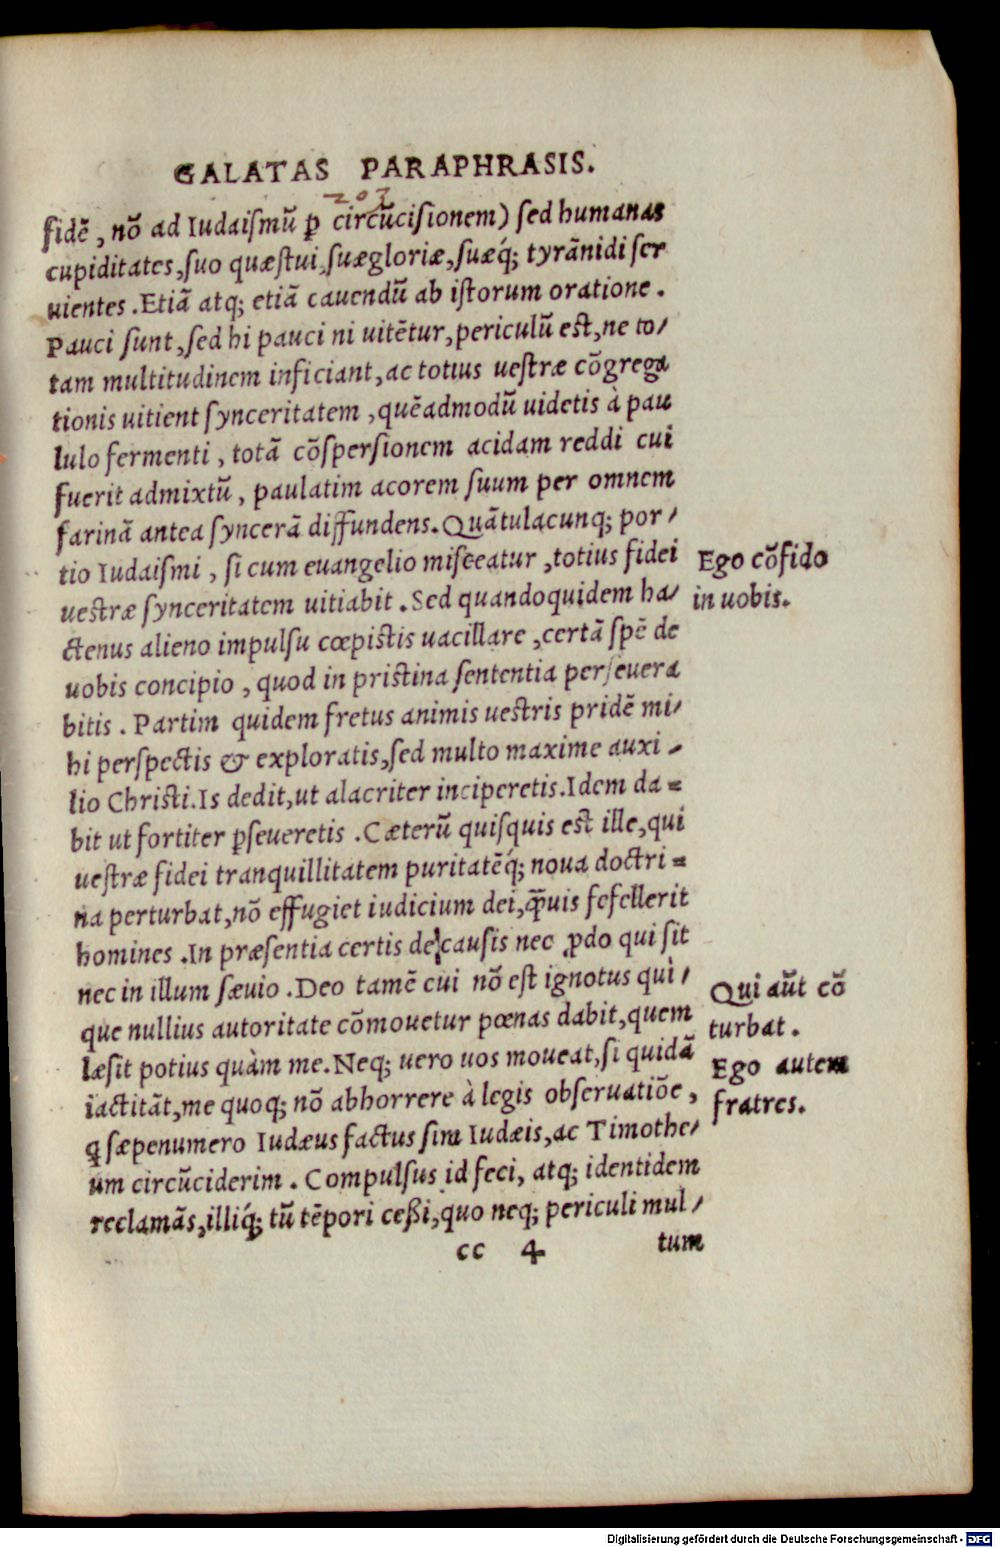 GALATAS PARAPHRASIS.
203
fidẽ, nõ ad Iudaiſmũ ꝑ circũciſionem) ſed humanas
cupiditates, ſuo quæſtui, ſuægloriæ, ſuæq́; tyrãnidi ſer
uientes. Etiã atq; etiã cauendũ ab iſtorum oratione.
Pauci ſunt, ſed hi pauci ni uitẽtur, periculũ eſt, ne to/
tam multitudinem inficiant, ac totius ueſtræ cõgrega
tionis uitient ſynceritatem, quẽadmodũ uidetis à pau
lulo fermenti, totã cõſperſionem acidam reddi cui
fuerit admixtũ, paulatim acorem ſuum per omnem
farinã antea ſyncerã diffundens. Quãtulacunq; por/
tio Iudaiſmi, ſi cum euangelio miſceatur, totius fidei
ueſtræ ſynceritatem uitiabit. Sed quandoquidem ha/
ctenus alieno impulſu cœpiſtis uacillare, certã ſpẽ de
uobis concipio, quod in priſtina ſententia perſeuera
bitis. Partim quidem fretus animis ueſtris pridẽ mi/
hi perſpectis & exploratis, ſed multo maxime auxi-
lio Chriſti. Is dedit, ut alacriter inciperetis. Idem da=
bit ut fortiter ꝑſeueretis. Cæterũ quiſquis eſt ille, qui
ueſtræ fidei tranquillitatem puritatẽq́; noua doctri=
na perturbat, nõ effugiet iudicium dei, ꝙ̃uis fefellerit
homines. In præſentia certis de cauſis nec ꝓdo qui ſit
nec in illum ſæuio. Deo tamẽ cui nõ eſt ignotus qui/
que nullius autoritate cõmouetur pœnas dabit, quem
læſit potius quàm me. Neq; uero uos moueat, ſi quidã
iactitãt, me quoq; nõ abhorrere à legis obſeruatiõe,
ꝙ ſæpenumero Iudæus factus ſim Iudæis, ac Timothe/
um circũciderim. Compulſus id feci, atq; identidem
reclamãs, illiq́; tũ tẽpori ceßi, quo neq; periculi mul/
cc 4 tum
Ego cõfido
in uobis.
Qui aũt cõ
turbat.
Ego autem
fratres.
Digitalisierung gefördert durch die Deutsche Forschungsgemeinschaft - DFG